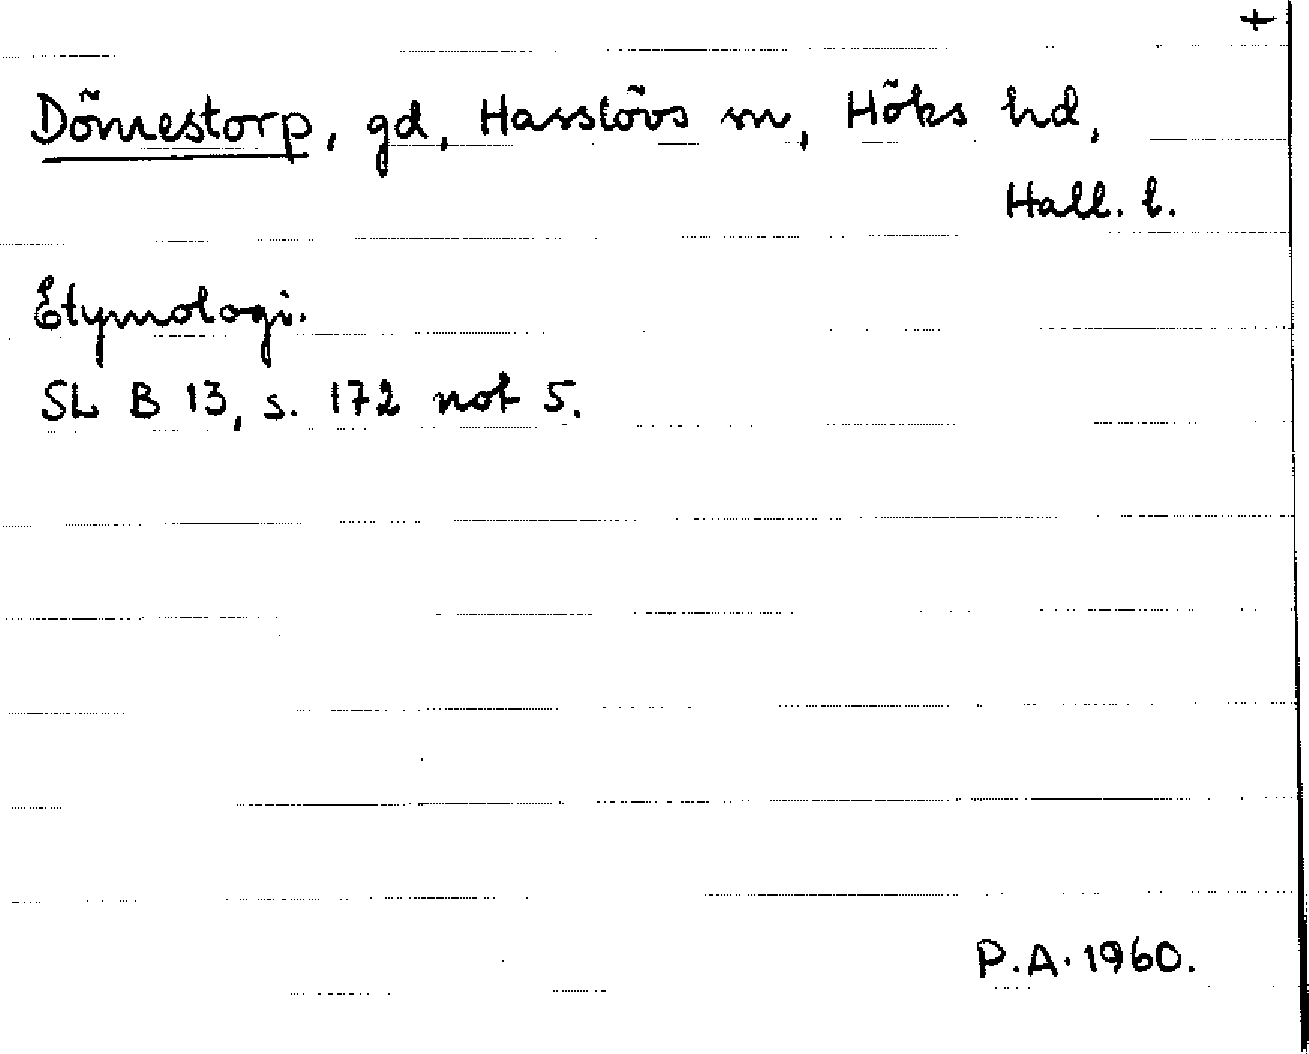 +
Dömestorp, gd, Hasslövs sn, Höks hd,
Hall. l.
Etymologi.
SL B 13, s. 172 not 5.
P.A. 1960.